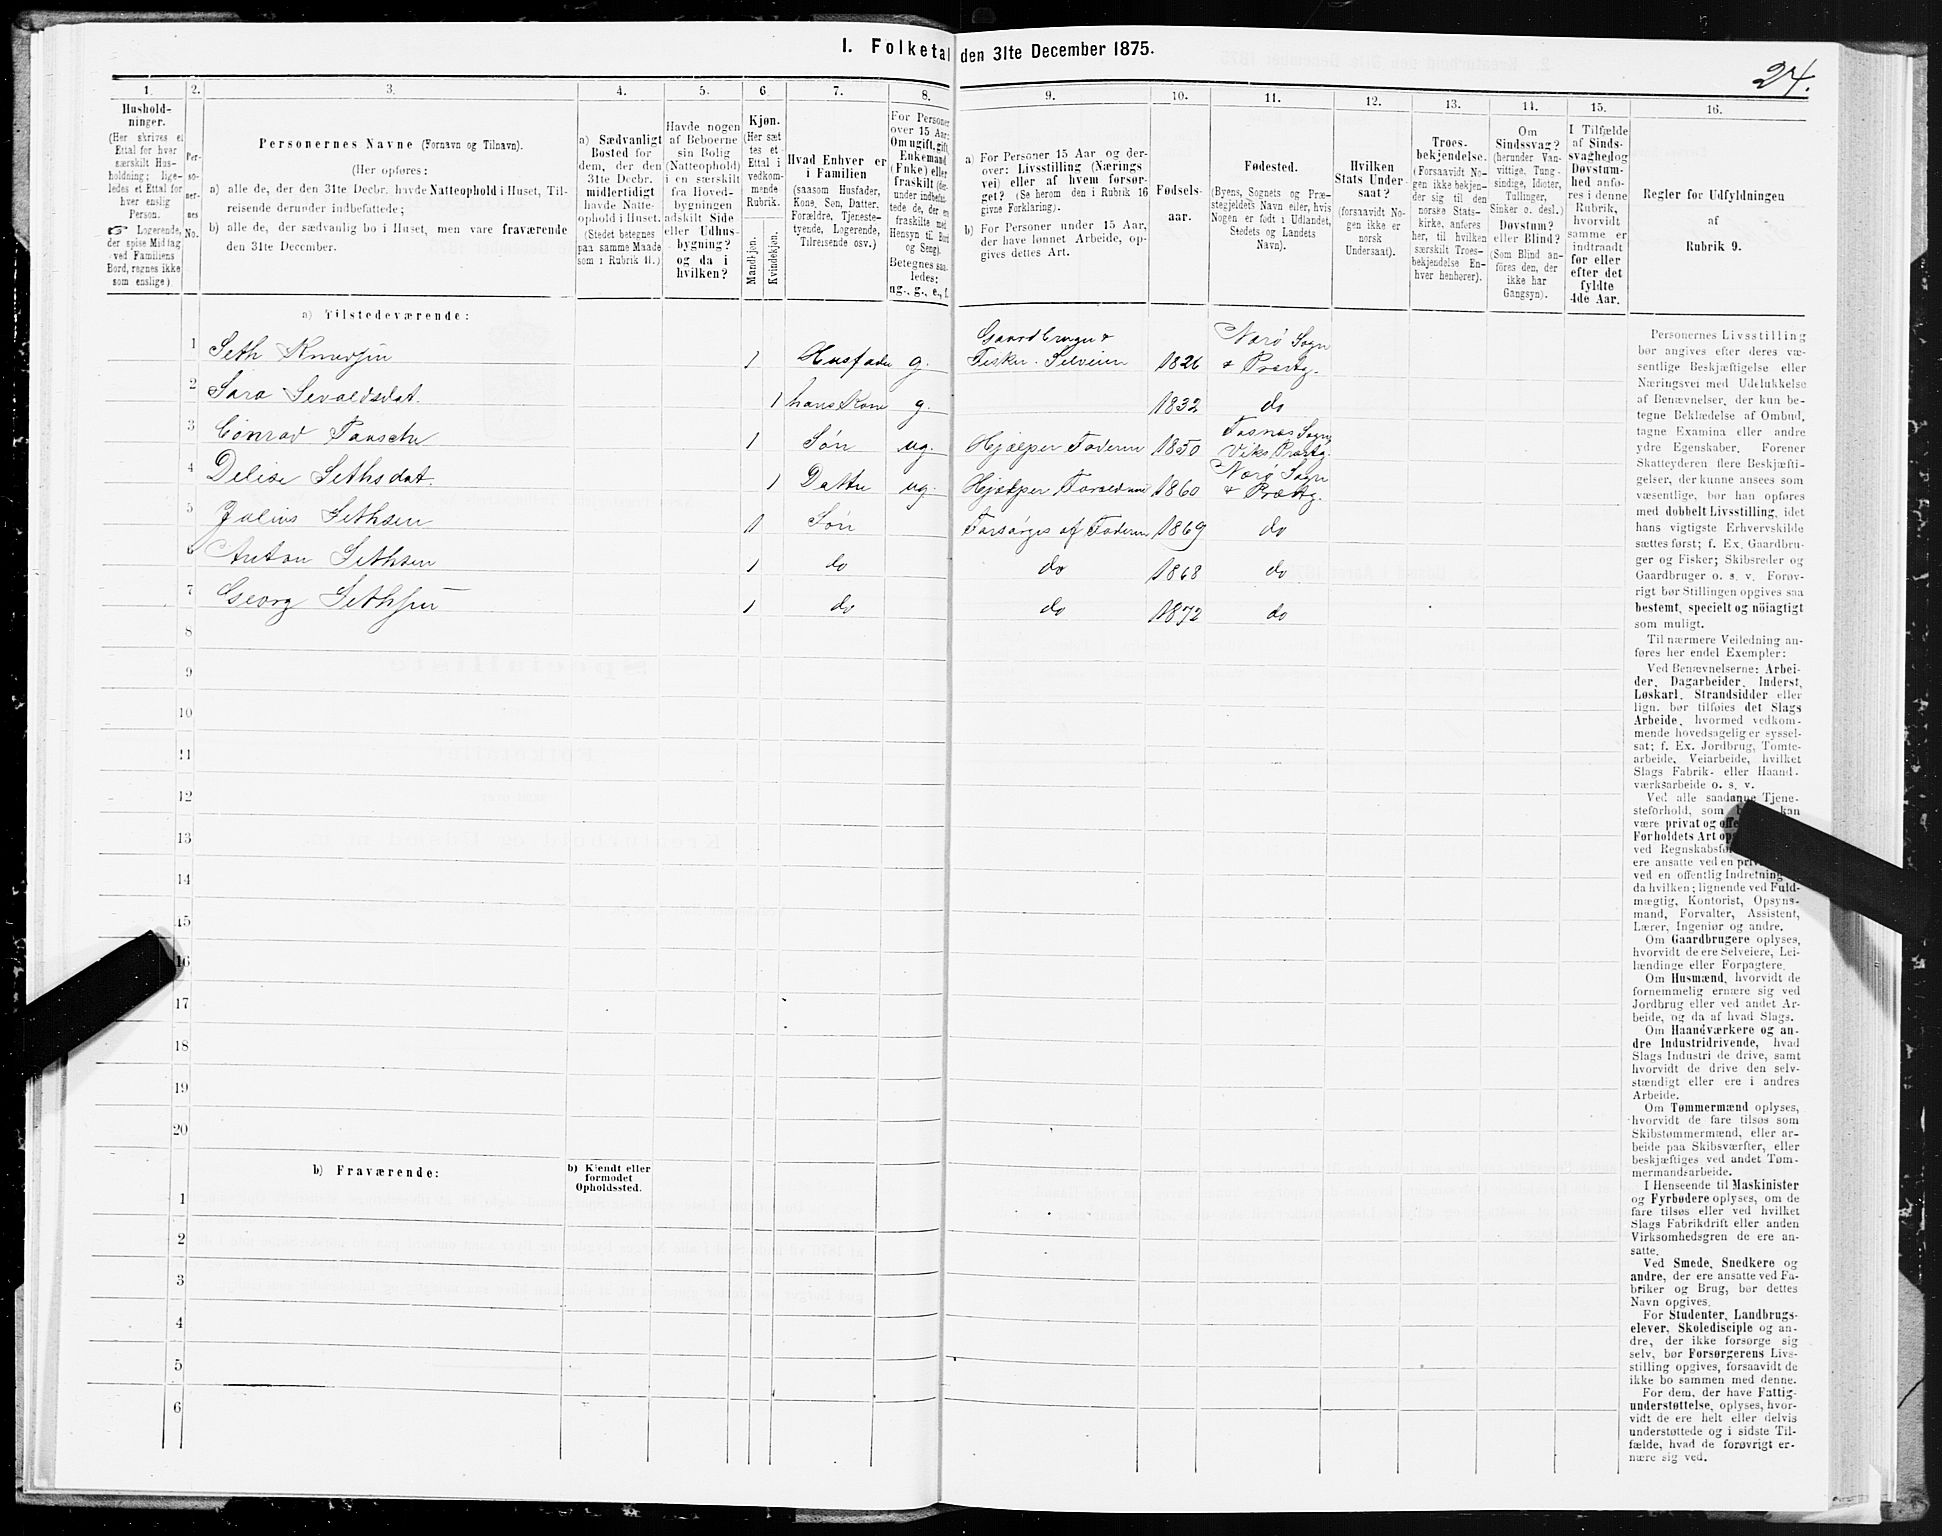 I. Folketal den 31te December 1875.
24.
1. 2. 3. 4. 5. 6. 7. 8. 9. 10. 11. 12. 13. 14. 15. 16.
Hushold-
ninger.
(Her skrives et
Ettal for hver
særskilt Hus-
holdning; lige-
ledes et Ettal for
hver enslig
Person.
☞ Logerende,
der spise Middag
ved Familiens
Bord, regnes ikke
som enslige)
Per-
so-
ner-
nes
No.
Personernes Navne (Fornavn og Tilnavn).
(Her opføres:
a) alle de, der den 31te Decbr. havde Natteophold i Huset, Til-
reisende derunder indbefattede;
b) alle de, der sædvanlig bo i Huset, men vare fraværende
den 31te December.
a) Sædvanligt
Bosted for
dem, der den
31te Decbr.
midlertidigt
havde Natte-
ophold i Huset.
(Stedet betegnes
paa samme Maade
som i Rubrik 11.)
Havde nogen
af Beboerne
sin Bolig
(Natteophold)
i en særskilt
fra Hoved-
bygningen
adskilt Side
eller Udhus-
bygning?
og da i
hvilken?
Kjøn.
(Her sæt
tes et
Ettal i
vedkom-
mende
Rubrik.
Mandkjøn.
Kvindekjøn.
Hvad Enhver er
i Familien
(saasom Husfader,
Kone, Søn, Datter,
Forældre, Tjeneste-
tyende, Logerende,
Tilreisende osv.)
For Personer
over 15 Aar:
Om ugift, gift,
Enkemand
(Enke) eller
fraskilt (der-
under indbefat-
tede de, der ere
fraskilte med
Hensyn til Bord
og Seng).
Betegnes saa-
ledes:
ug., g., e., f.
a) For Personer 15 Aar og der-
over: Livsstilling (Nærings-
vei) eller af hvem forsør-
get? (Se herom den i Rubrik 16
givne Forklaring).
b) For Personer under 15 Aar,
der have lønnet Arbeide, op-
gives dettes Art.
Fødsels-
aar.
Fødested.
(Byens, Sognets og Præ-
stegjeldets Navn eller, hvis
Nogen er født i Udlandet,
Stedets og Landets
Navn).
Hvilken
Stats Under-
saat?
(forsaavidt No-
gen ikke er
norsk
Undersaat).
Troes-
bekjendelse.
(Forsaavidt No-
gen ikke bekjen-
der sig til den
norske Stats-
kirke, anføres
her, til hvilken
særskilt Troes-
bekjendelse En-
hver henhører).
Om
Sindssvag?
(herunder Van-
vittige, Tung-
sindige, Idioter,
Tullinger,
Sinker o. desl.)
Døvstum?
eller Blind?
(Som Blind an-
føres den, der
ikke har
Gangsyn).
I Tilfælde
af Sinds-
svaghed og
Døvstum-
hed anfø-
res i denne
Rubrik,
hvorvidt
samme er
indtraadt
før eller
efter det
fyldte
4de Aar.
Regler for Udfyldningen
af
Rubrik 9.
a) Tilstedeværende:
1 Seth Knudsen 1 Husfader g. Gaardbruger &
Fisker. Selveier 1826 Nærø Sogn
& Præstg.
2 Sara Sevaldsdat. 1 hans Kone g. 1832 do
3 Conrad Paasche 1 Søn ug. Hjælper Faderen 1850 Fosnæs Sogn
Viks Præstg.
4 Delise Sethsdat. 1 Datter ug. Hjælper Forældrene 1860 Nærø Sogn
& Præstg.
5 Julius Sethsen 1 Søn Forsørges af Faderen 1869 do
6 Anton Sethsen 1 do do 1868 do
7 Georg Sethsen 1 do do 1872 do
8
9
10
11
12
13
14
15
16
17
18
19
20
b) Fraværende:
b) Kjendt eller
formodet
Opholdssted.
1
2
3
4
5
6
Personernes Livsstilling
bør angives efter deres væ-
sentlige Beskjæftigelse eller
Næringsvei med Udelukkelse
af Benævnelser, der kun be-
tegne Beklædelse af Ombud,
tagne Examina eller andre
ydre Egenskaber. Forener
Skatteyderen flere Beskjæfti-
gelser, der kunne ansees som
væsentlige, bør han opføres
med dobbelt Livsstilling, idet
hans vigtigste Erhvervskilde
sættes først; f. Ex. Gaardbru-
ger og Fisker; Skibsreder og
Gaardbruger o. s. v. Forøv-
rigt bør Stillingen opgives saa
bestemt, specielt og nöiagtigt
som muligt.
Til nærmere Veiledning an-
føres her endel Exempler:
Ved Benævnelserne: Arbei-
der, Dagarbeider, Inderst,
Løskarl, Strandsidder eller
lign. bør tilføies det Slags
Arbeide, hvormed vedkom-
mende hovedsagelig er syssel-
sat; f. Ex. Jordbrug, Tomte-
arbeide, Veiarbeide, hvilket
Slags Fabrik- eller Haand-
værksarbeide o. s. v.
Ved alle saadanne Tjene-
steforhold, som kan
være privat og
Forholdets Art
ved
ere ansatte ved en
ved en offentlig Indretning
da hvilken; lignende ved Fuld-
mægtig, Kontorist, Opsyns-
mand, Forvalter, Assistent,
Lærer, Ingeniør og andre.
Om Gaardbrugere oplyses,
hvorvidt de ere Selveiere, Lei-
lændinge eller Forpagtere.
Om Husmænd, hvorvidt de
fornemmelig ernære sig ved
Jordbrug eller ved andet Ar-
beide, og da af hvad Slags.
Om Haandværkere og an-
dre Industridrivende, hvad
Slags Industri de drive, samt
hvorvidt de drive den selv-
stændigt eller ere i andres
Arbeide.
Om Tømmermænd oplyses,
hvorvidt de fare tilsøs som
Skibstømmermænd, eller ar-
beide paa Skibsværfter, eller
beskjæftiges ved andet Tøm-
mermandsarbeide.
I Henseende til Maskinister
og Fyrbødere oplyses, om de
fare tilsøs eller ved hvilket
Slags Fabrikdrift eller anden
Virksomhedsgren de ere an-
satte.
Ved Smede, Snedkere og
andre, der ere ansatte ved Fa-
briker og Brug, bør dettes
Navn opgives.
For Studenter, Landbrugs-
elever, Skoledisciple og an-
dre, der ikke forsørge sig
selv, bør Forsørgerens Livs-
stilling opgives, forsaavidt de
ikke bo sammen med denne.
For dem, der have Fattig-
understøttelse, oplyses, hvor-
vidt de ere helt eller delvis
understøttede og i sidste Til-
fælde, hvad de forøvrigt er-
nære sig ved.